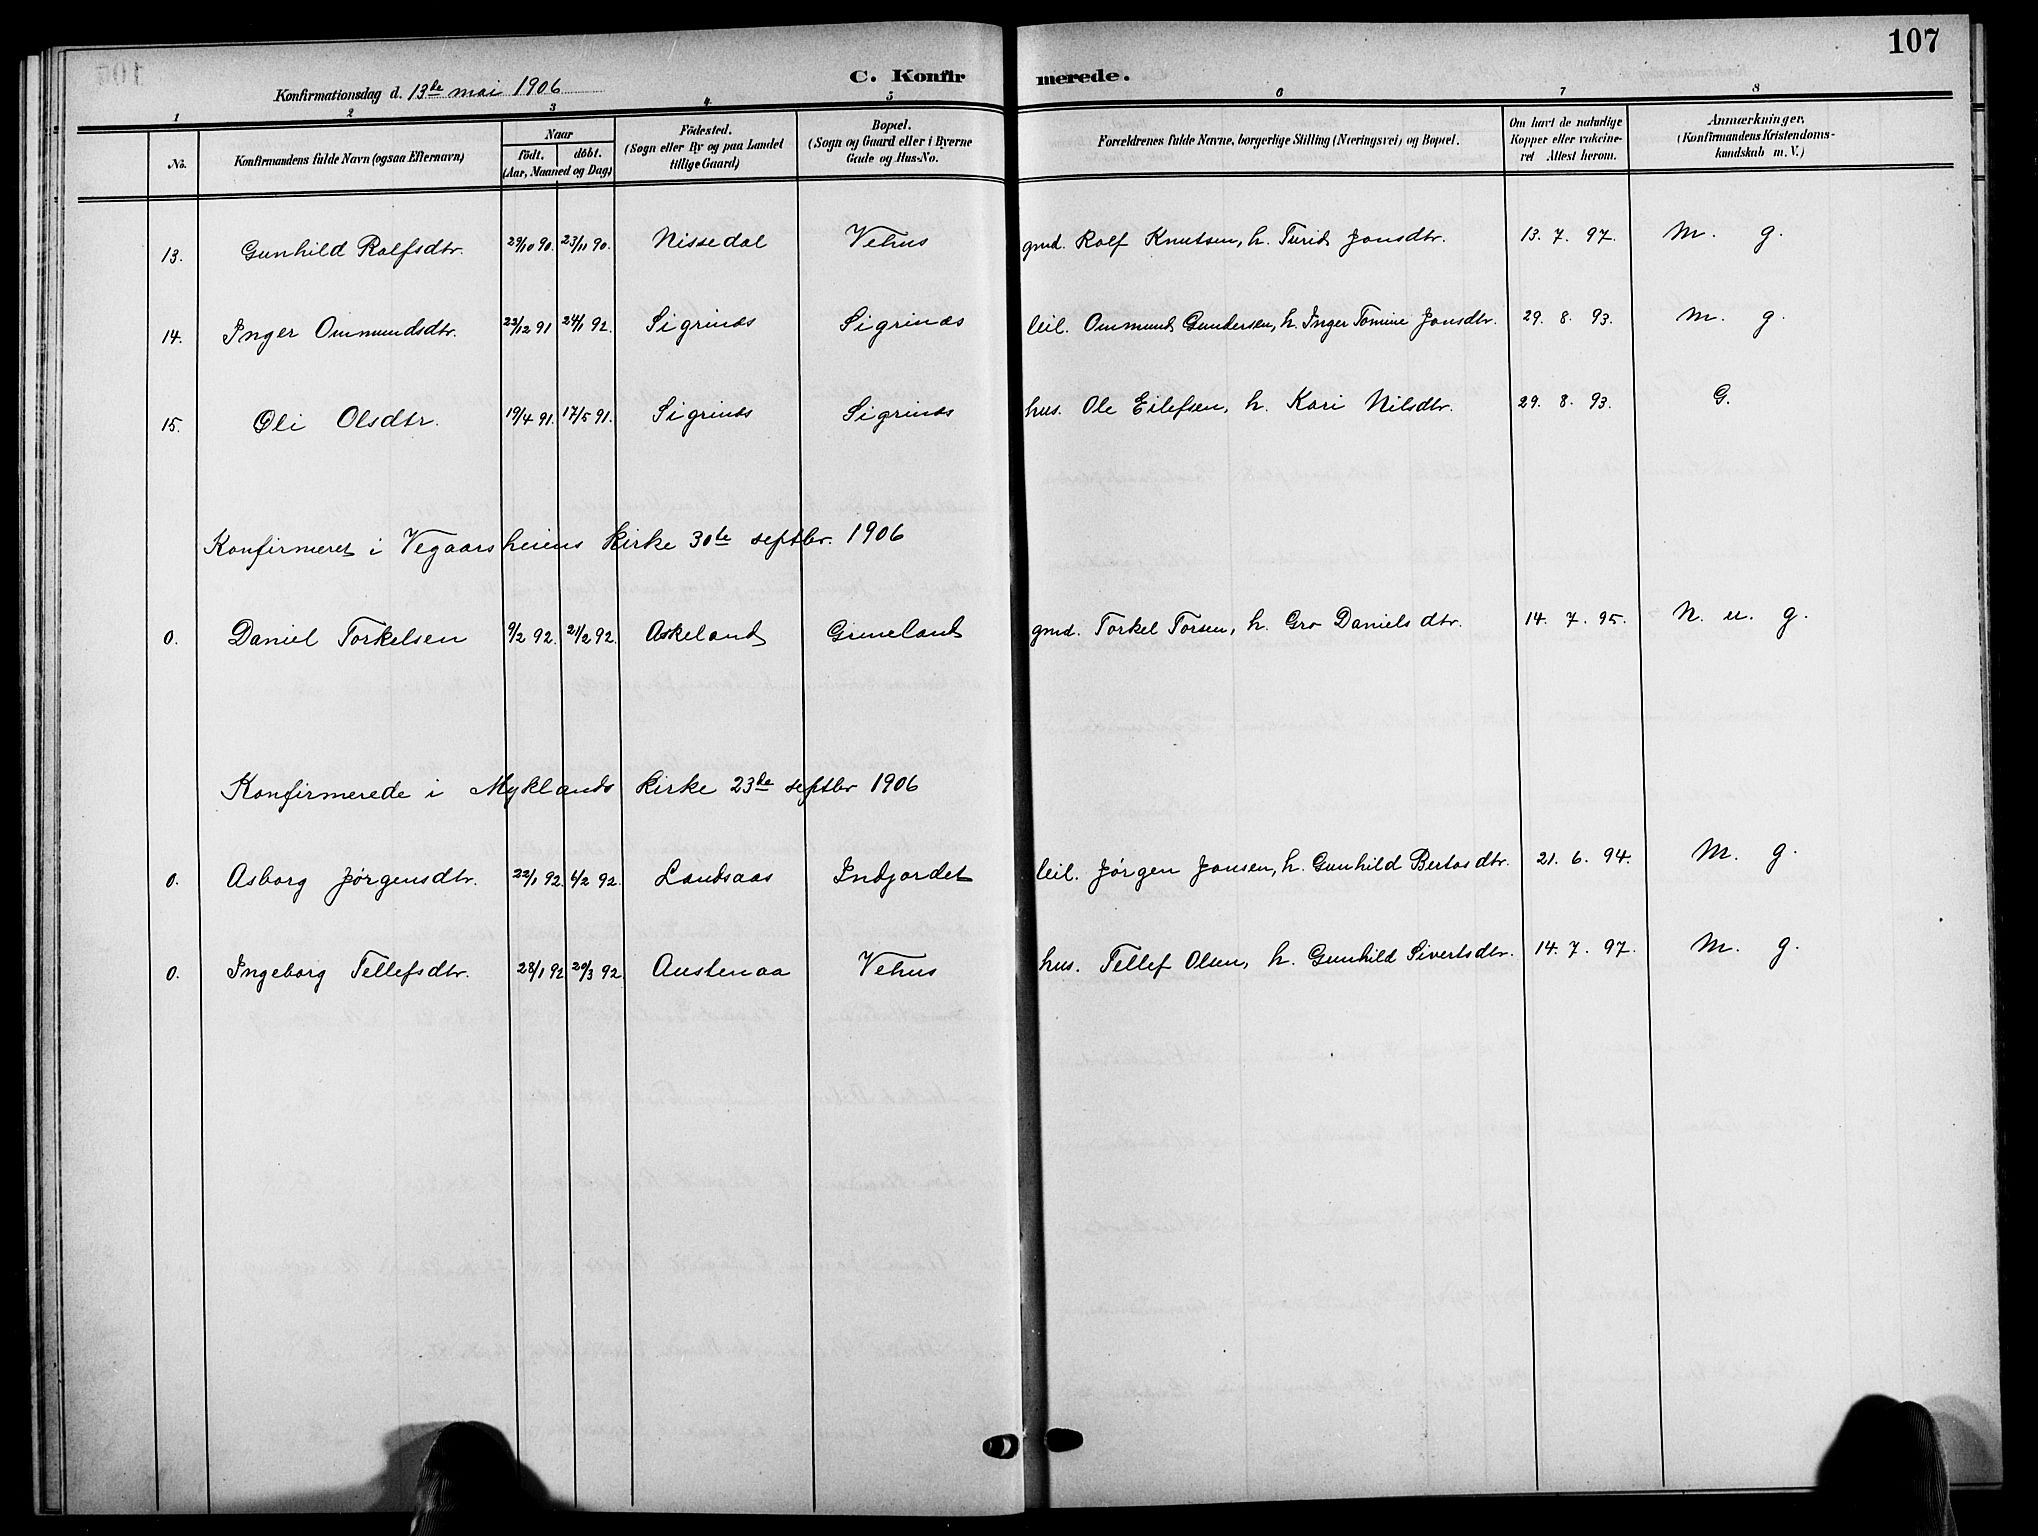 107
C. Konfirmerede.
Konfirmationsdag d. 13de mai 1906
1 2 3 4 5 6 7 8
No. Konfirmandens fulde Navn (ogsaa Efternavn) Naar födt. döbt. (Aar, Maaned og Dag) Födested. (Sogn eller By og paa Landet tillige Gaard) Bopæl. (Sogn og Gaard eller i Byerne Gade og Hus-No. Forældrenes fulde Navne, borgerlige Stilling (Næringsvei) og Bopæl. Om havt de naturlige Kopper eller vakcineret Attest herom. Anmærkninger, (Konfirmandens Kristendomskundskab m. V.)
13. Gunhild Rolfsdtr. 29/10 90. 23/11 90. Nissedal Vehus gmd. Rolf Knutsen, h. Turid Jonsdtr. 13. 7. 97. M. g.
14. Inger Ommundsdtr. 22/12 91 24/1 92. Sigrinæs Sigrinæs leil. Ommund Gundersen, h. Inger Tomine Jonsdtr. 29. 8. 93. M. g.
15. Oli Olsdtr. 19/4 91. 17/5 91. Sigrinæs Sigrinæs hus. Ole Eilefsen, h. Kari Nilsdtr. 29. 8. 93. G.
Konfirmeret i Vegaarsheiens kirke 30te septbr. 1906
0. Daniel Torkelsen 9/2 92. 21/2 92. Askeland Grimeland gmd. Torkel Torsen, h. Gro Danielsdtr. 14. 7. 95. N. u. g.
Konfirmerede i Myklands kirke 23de septbr 1906
0. Asborg Jørgensdtr. 22/1 92 4/2 92. Landsaas Indjordet leil. Jørgen Jonsen, h. Gunhild Bertosdtr. 21. 6. 94. M. g.
0. Ingeborg Tellefsdtr. 28/1 92 20/3 92 Austenaa Vehus hus. Tellef Olsen, h. Gunhild Sivertsdtr. 14. 7. 97. M. g.